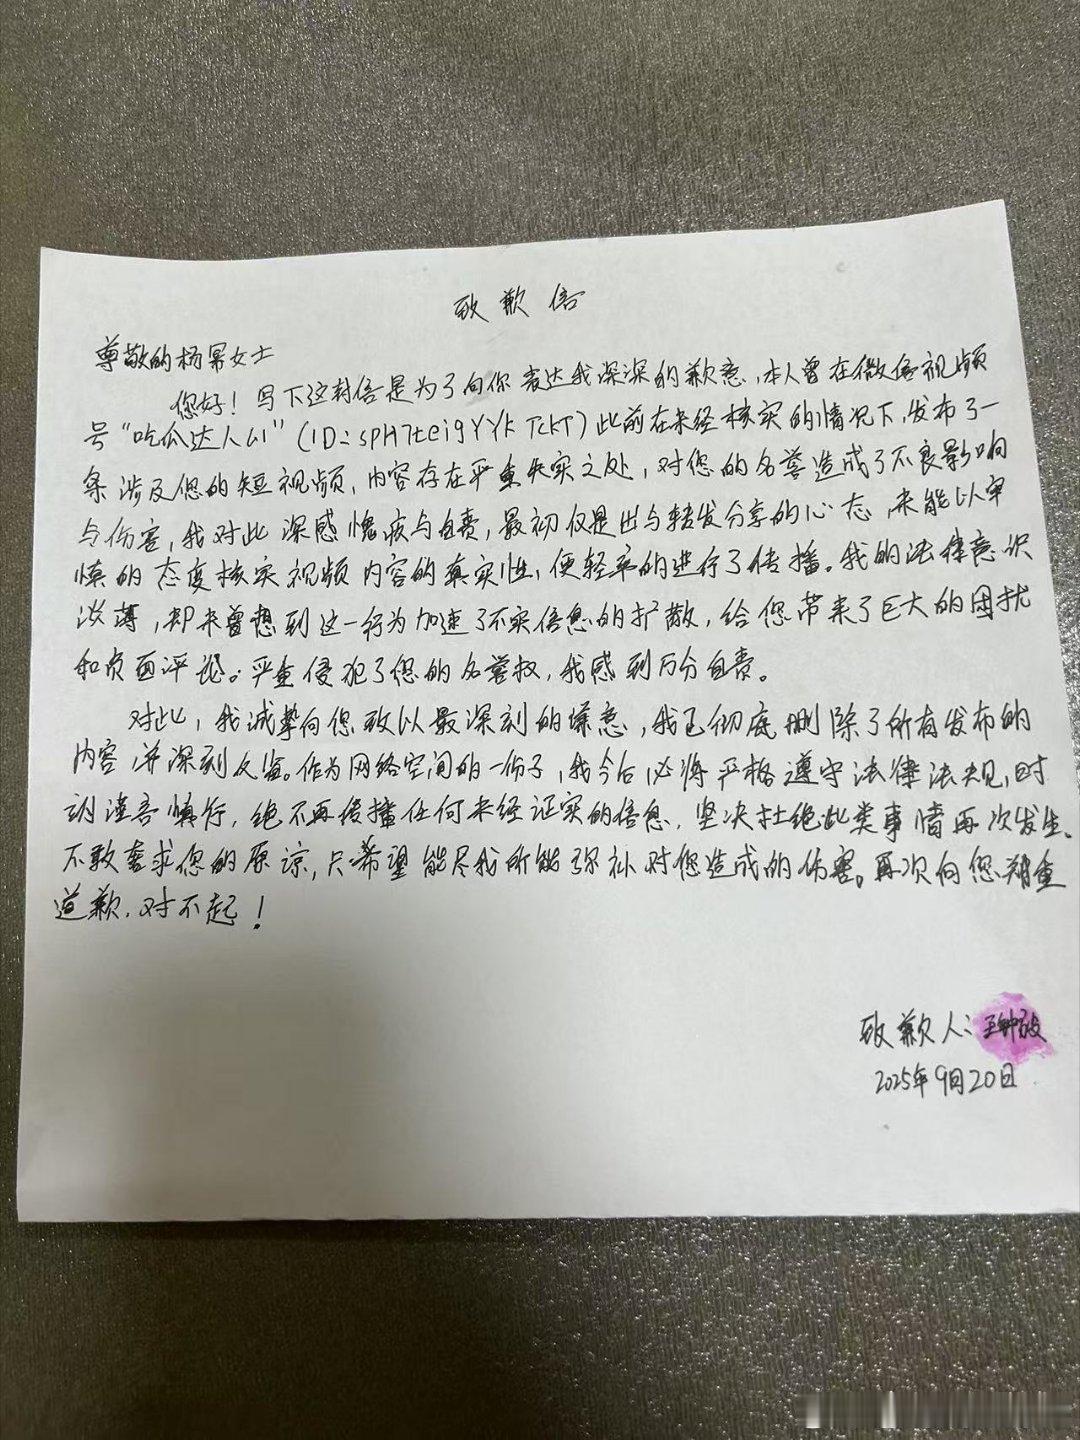 致歉信
尊敬的杨幂女士
您好！写下这封信是为了向你表达我深深的歉意，本人曾在微信视频
号“吃瓜达人山”(ID:spH7teig9YYkTckT)此前在未经核实的情况下，发布了一
条涉及您的短视频，内容存在严重失实之处，对您的名誉造成了不良影响
与伤害，我对此深感愧疚与自责，最初仅是出与转发分享的心态，未能以审
慎的态度核实视频内容的真实性，便轻率的进行了传播。我的法律意识
淡薄，却未曾想到这一行为加速了不实信息的扩散，给您带来了巨大的困扰
和负面评论。严重侵犯了您的名誉权，我感到万分自责。
对此，我诚挚向您致以最深刻的歉意，我已彻底删除了所有发布的
内容，并深刻反省。作为网络空间的一份子，我今后必将严格遵守法律法规，时
刻谨言慎行，绝不再传播任何未经证实的信息，坚决杜绝此类事情再次发生。
不敢奢求您的原谅，只希望能尽我所能弥补对您造成的伤害。再次向您郑重
道歉，对不起！
致歉人：
2025年9月20日